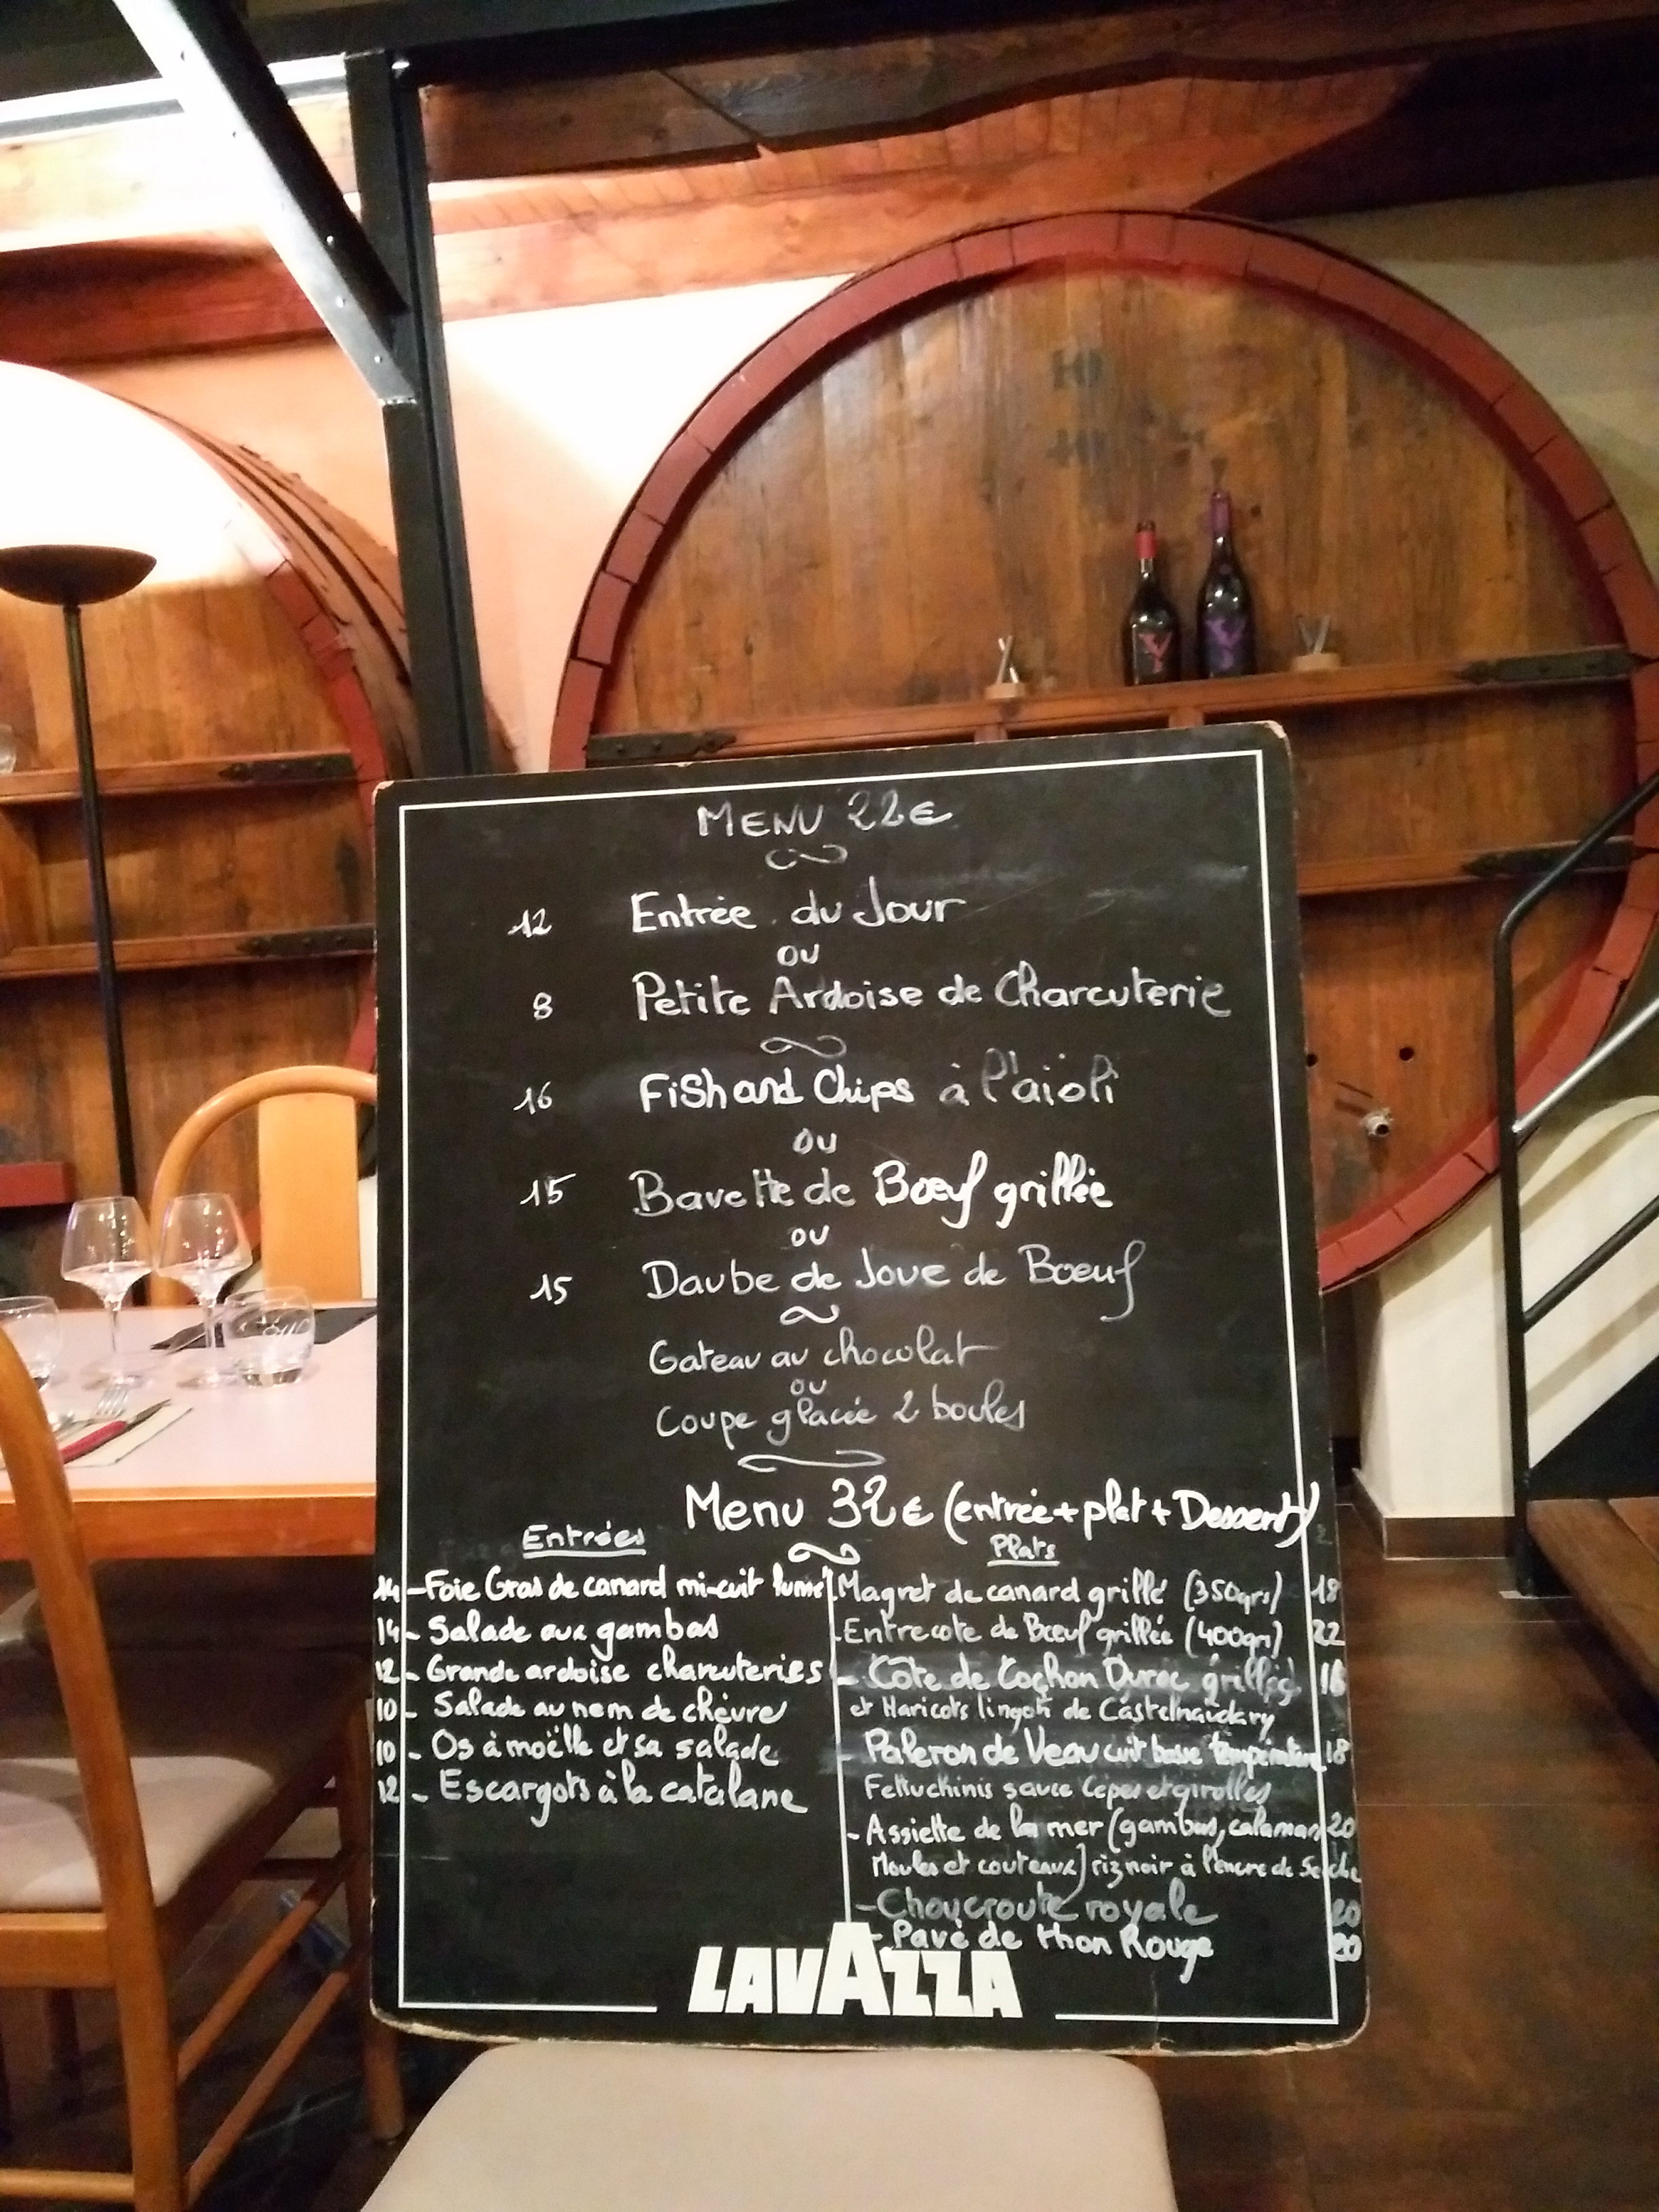 MENU 22€
12 Entrée du Jour
ou
8 Petite Ardoise de Charcuterie
16 Fish and Chips à l'aioli
ou
15 Bavette de Bœuf grillée
ou
15 Daube de Joue de Boeuf
Gateau au chocolat
ou
Coupe glacée 2 boules
Menu 32€ (entrée + plat + Dessert)
Entrées
14 - Foie Gras de canard mi-cuit fumé
14 - Salade aux gambas
12 - Grande ardoise charcuteries
10 - Salade au nem de chèvre
10 - Os à moëlle et sa salade
12 - Escargots à la catalane
Plats
- Magret de canard grillé (350grs) 18
- Entrecote de Bœuf grillée (400grs) 22
- Côte de Cochon Duroc grillée 16
et Haricots lingots de Castelnaudary
Paleron de Veau cuit basse température 18
Fettuchinis sauce Cèpes et girolles
- Assiette de la mer (gambas, calamar 20
Moules et couteaux) riz noir à l'encre de Seiche
- Choucroute royale 20
- Pavé de thon Rouge 20
LAVAZZA